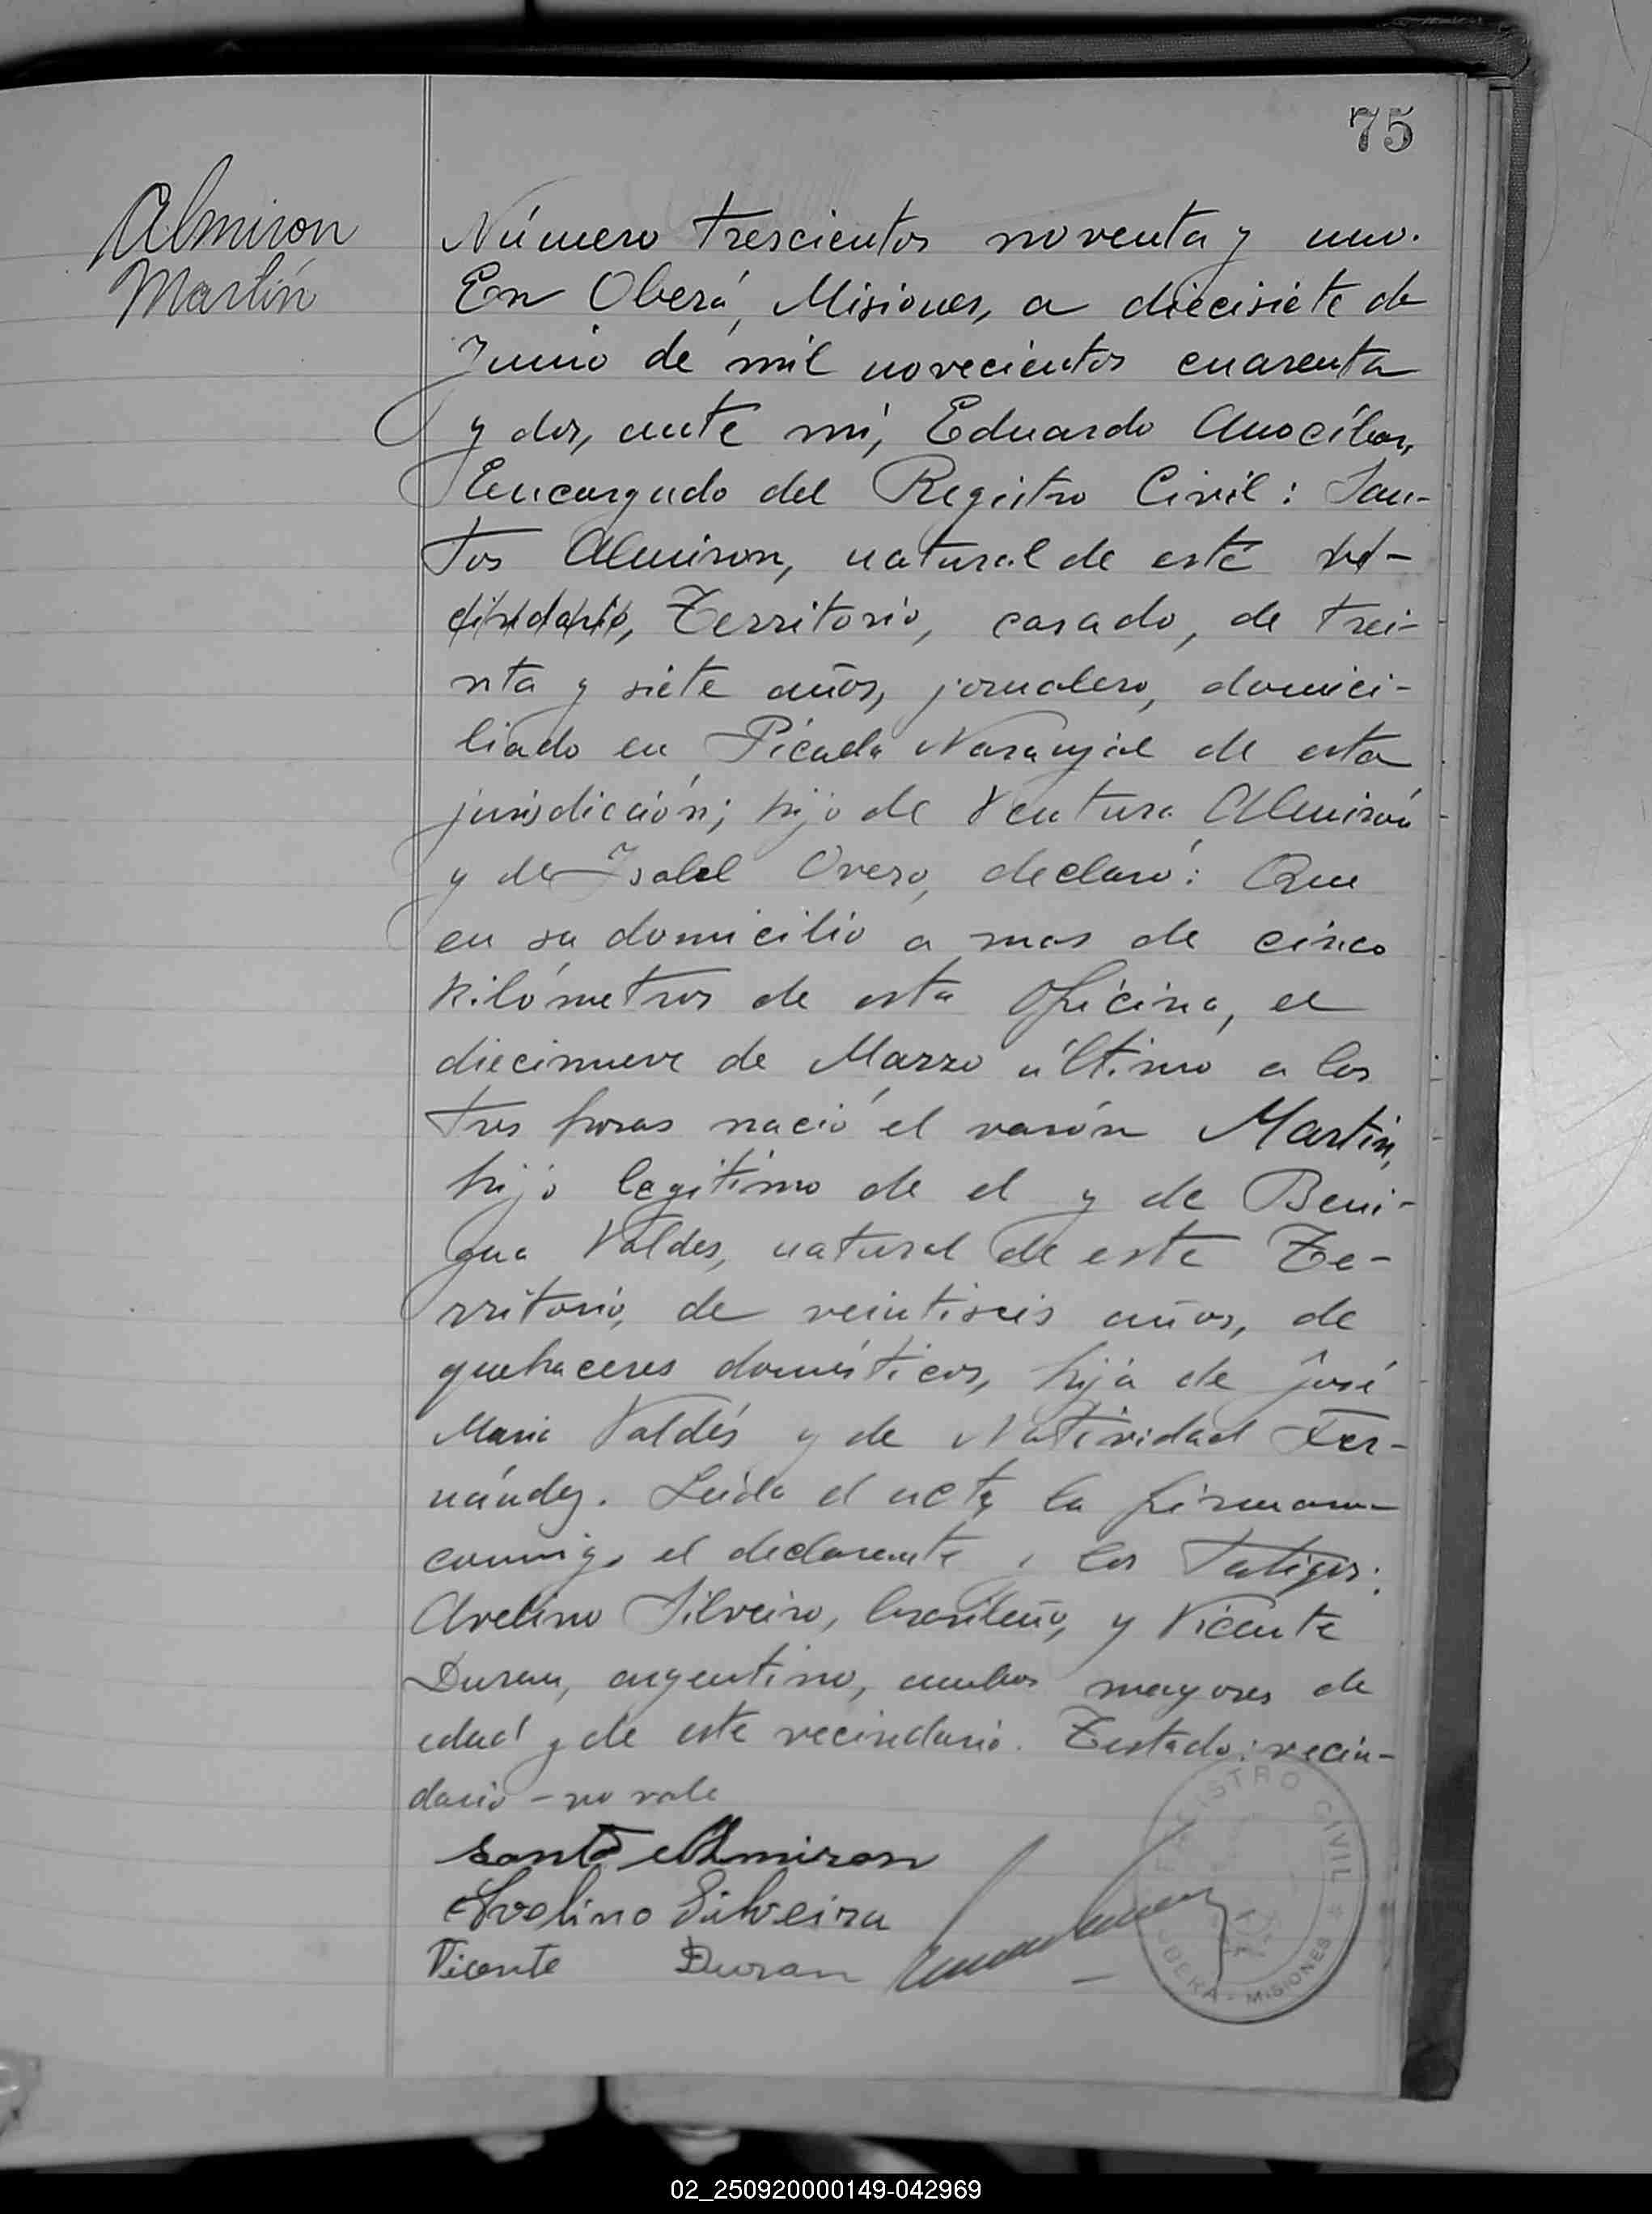 75
Almiron
Martín
Número trescientos noventa y uno.
En Oberá, Misiones, a diecisiete de
Junio de mil novecientos cuarenta
y dos, ante mí, Eduardo
Encargado del Registro Civil: San-
tos Almiron, natural de este ve-
cindario, Territorio, casado, de trei-
nta y siete años, jornalero, domici-
liado en Picada Naranjal de esta
jurisdicción; hijo de Ventura Almirón
y de Isabel Overo, declaró: Que
en su domicilio a mas de cinco
kilómetros de esta Oficina, el
diecinueve de Marzo último a las
tres horas nació el varón Martin,
hijo legítimo de el y de Beni-
gna Valdes, natural de este Te-
rritorio, de veintiseis años, de
quehaceres domésticos, hija de José
Maria Valdés y de Natividad Fer-
nández. Leída el acta la firmaron
conmigo el declarante y los testigos:
Avelino Silveira, brasileño, y Vicente
Duran, argentino, ambos mayores de
edad y de este vecindario. Testado: vecin-
dario - no vale
Santo Almiron
Avelino Silveira
Vicente Duran
REGISTRO CIVIL
OBERA - MISIONES
02_250920000149-042969